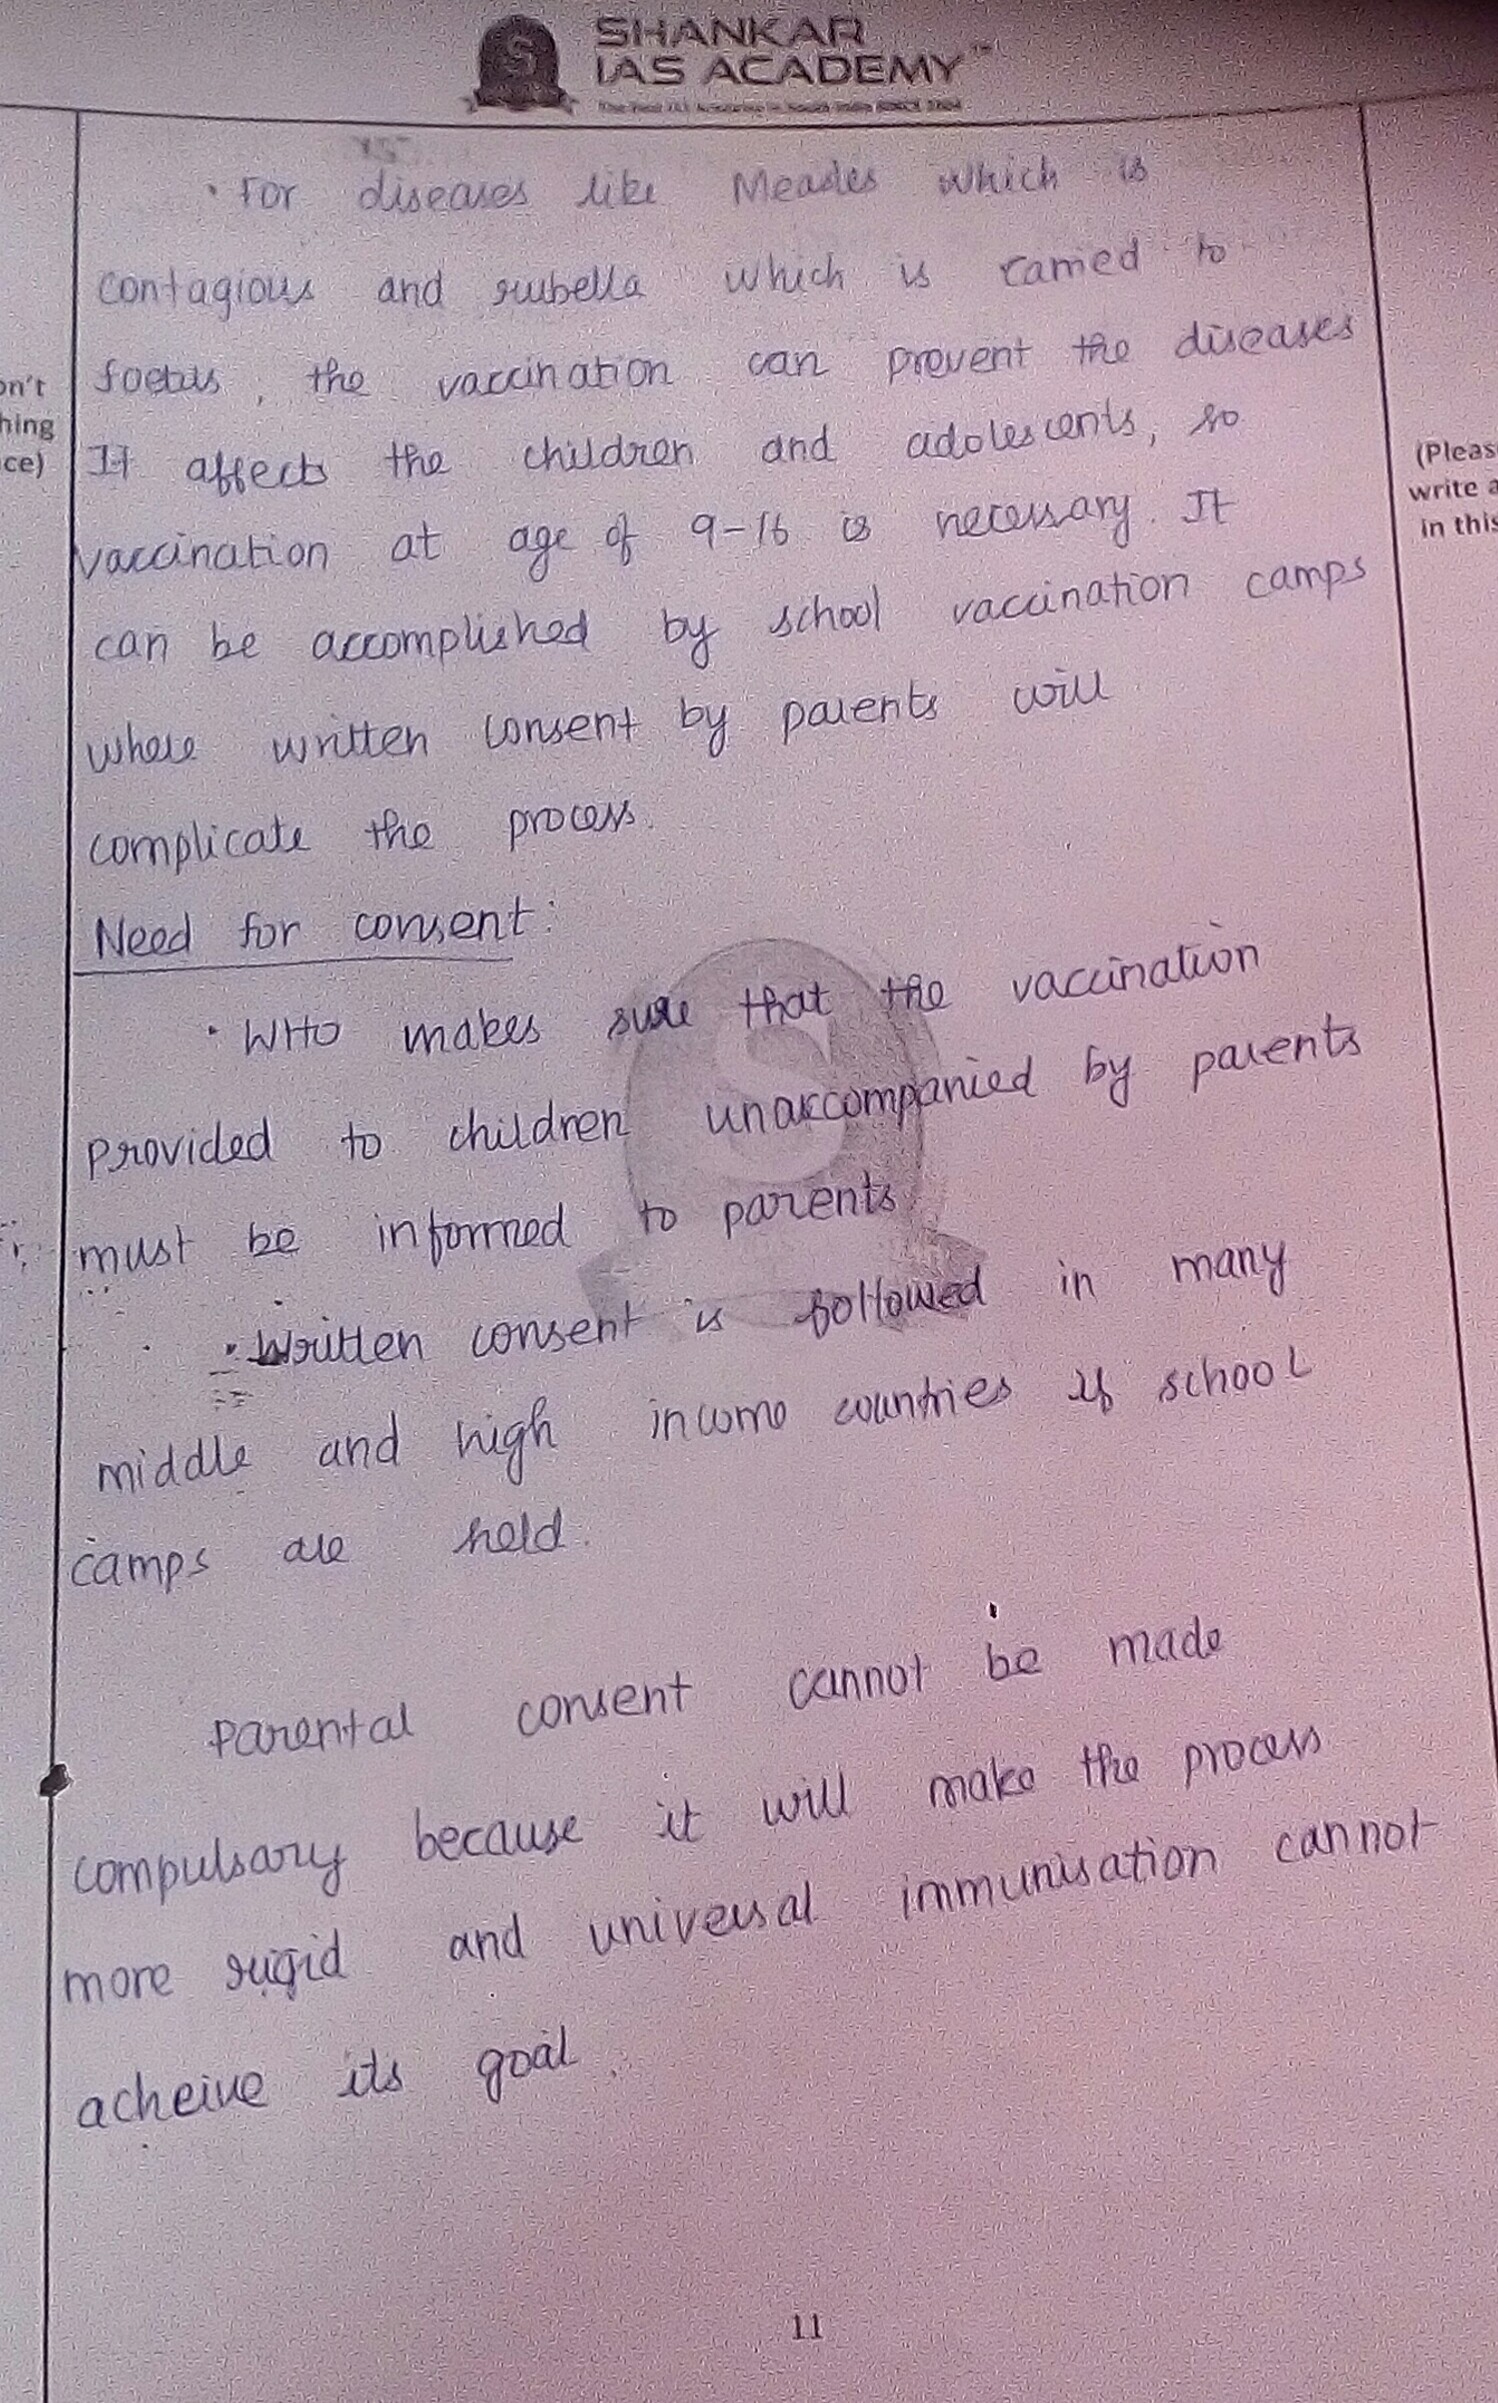 SHANKAR
IAS ACADEMY™
• For diseases like Measles which is
contagious and rubella which is carried to
foetus, the vaccination can prevent the diseases
It affects the children and adolescents, so
vaccination at age of 9-16 is necessary. It
can be accomplished by school vaccination camps
where written consent by parents will
complicate the process.
Need for consent:
• WHO makes sure that the vaccination
provided to children unaccompanied by parents
must be informed to parents
• Written consent is followed in many
middle and high income countries if school
camps are held.
Parental consent cannot be made
compulsory because it will make the process
more rigid and universal immunisation cannot
acheive its goal.
on't
hing
ce)
(Pleas
write a
in this
11